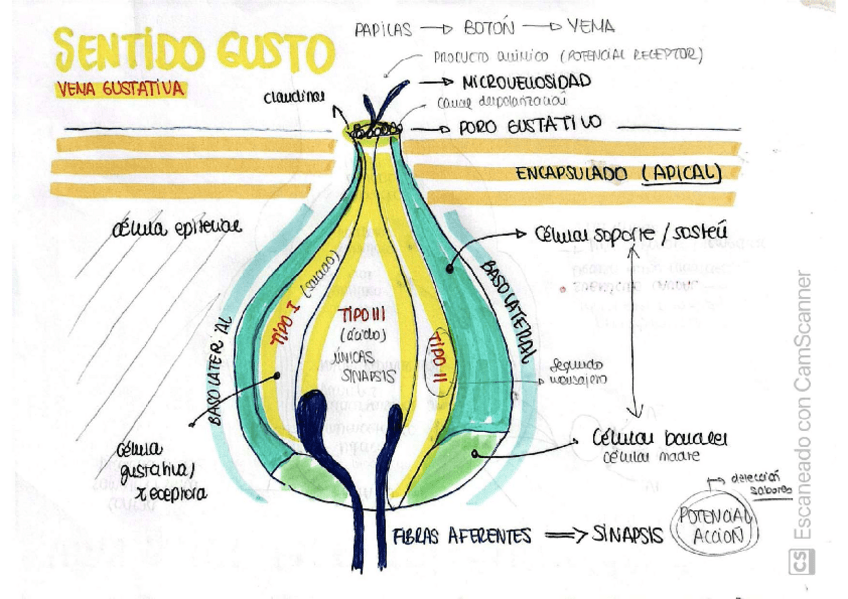 PAPILAS → BOTÓN → YEMA
SENTIDO GUSTO
PRODUCTO QUÍMICO (POTENCIAL RECEPTOR)
YEMA GUSTATIVA
MICROVELLOSIDAD
claudinas
causar despolarización
PORO GUSTATIVO
ENCAPSULADO (APICAL)
célula epitelial
Células soporte / sostén
BASOLATERAL
BASOLATERAL
TIPO I (salado)
TIPO III
(ácido)
ÚNICAS
SINAPSIS
TIPO II
segundo
mensajero
Células basales
célula madre
célula
gustativa/
receptora
detección
sabores
POTENCIAL
ACCIÓN
FIBRAS AFERENTES ⇒ SINAPSIS
CS Escaneado con CamScanner